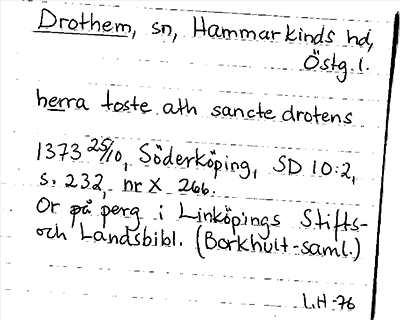 Drothem, sn, Hammarkinds hd,
Östg. l.
herra toste ath sancte drotens
1373 25/10, Söderköping, SD 10:2,
s. 232, nr X 266.
Or på perg i Linköpings Stifts-
och Landsbibl. (Borkhult-saml.)
L.H -76